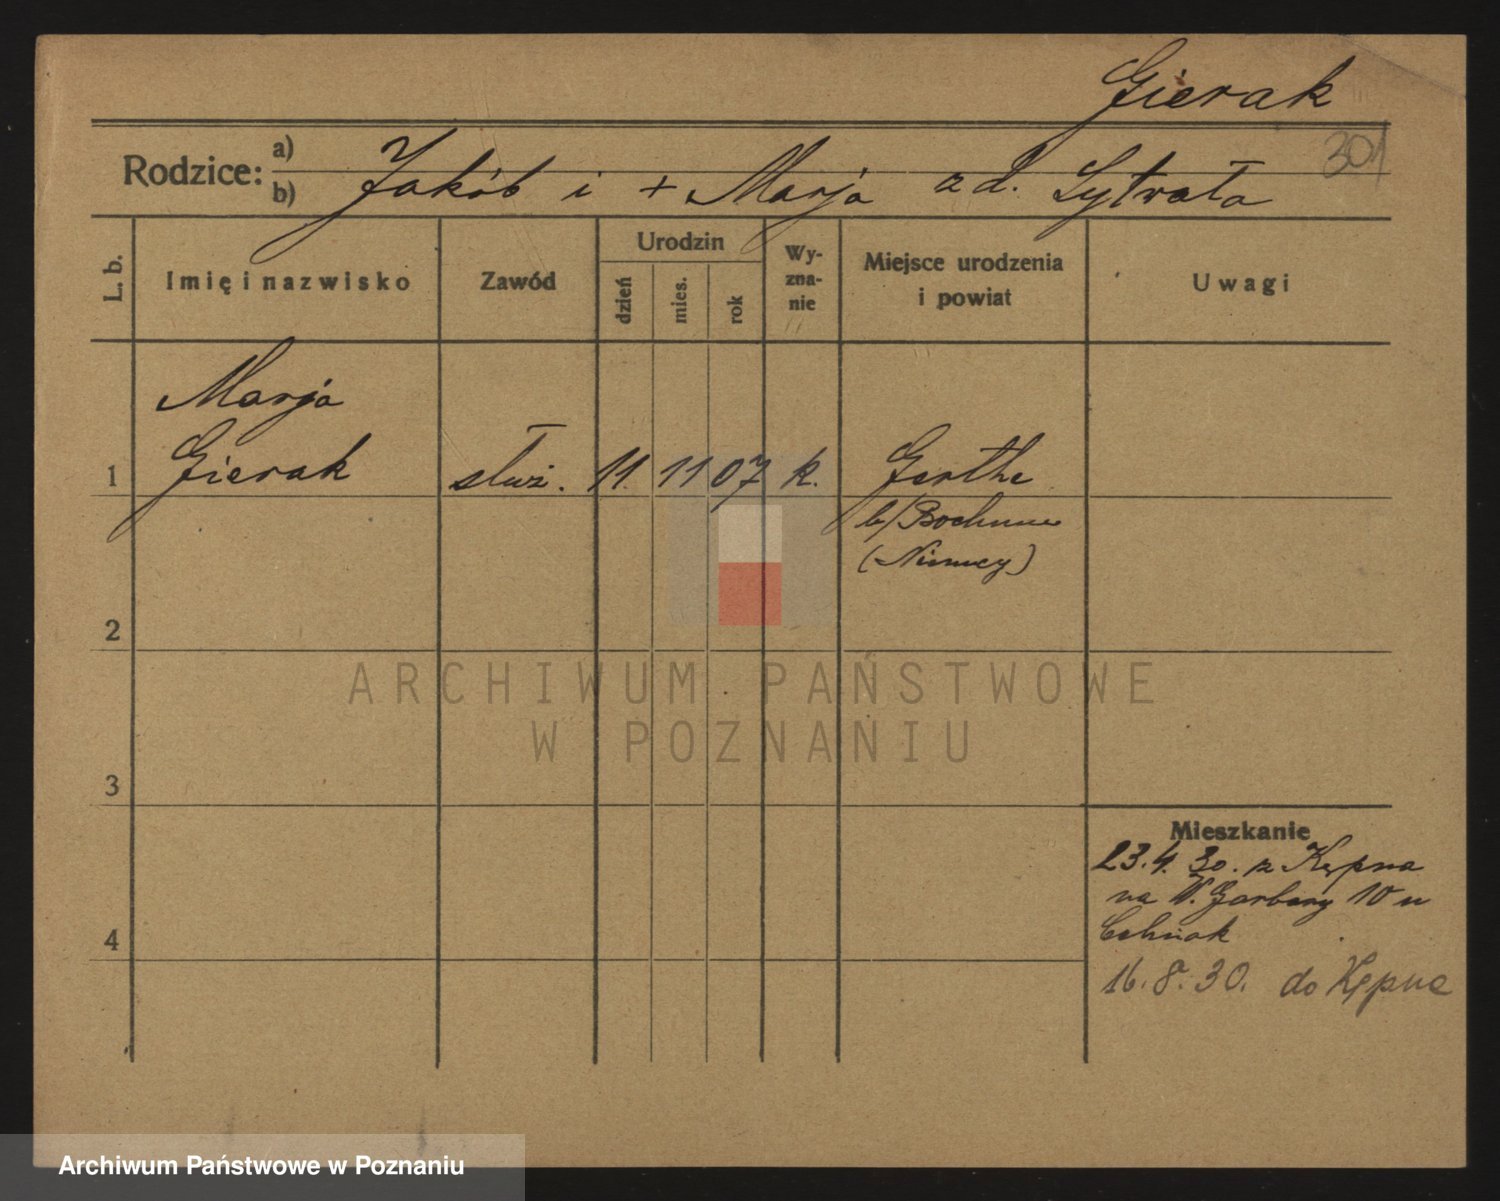 Gierak
301
Rodzice: a)
b) Jakób i + Marja zd. Sytwała
L. b.
Imię i nazwisko
Zawód
Urodzin
dzień
mies.
rok
Wy-
zna-
nie
Miejsce urodzenia
i powiat
Uwagi
Marja
1 Gierak służ. 11. 11 07 k. Gerthe
b/Bochum
(Niemcy)
2
3
4
Mieszkanie
23.4.30. z Kępna
na W. Garbary 10 u
16.8.30. do Kępna
ARCHIWUM PAŃSTWOWE
W POZNANIU
Archiwum Państwowe w Poznaniu